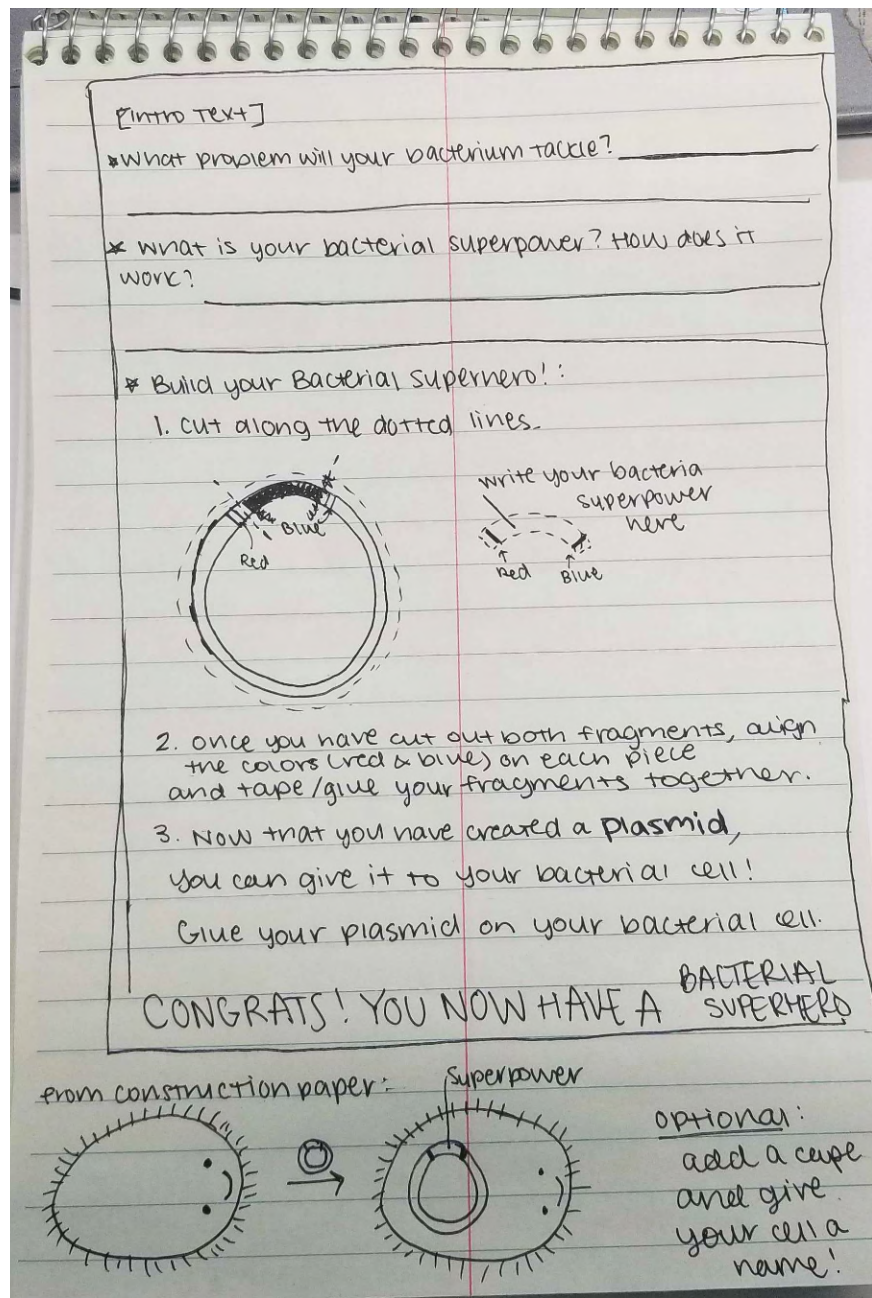 [Intro Text]
*What problem will your bacterium tackle?
* What is your bacterial superpower? How does it
work?
* Build your Bacterial Superhero!:
1. Cut along the dotted lines.
Blue
Red
write your bacteria
superpower
here
Red Blue
2. Once you have cut out both fragments, align
the colors (red & blue) on each piece
and tape/glue your fragments together.
3. Now that you have created a plasmid,
you can give it to your bacterial cell!
Glue your plasmid on your bacterial cell.
CONGRATS! YOU NOW HAVE A BACTERIAL
SUPERHERO
From construction paper:
superpower
optional:
add a cape
and give
your cell a
name!